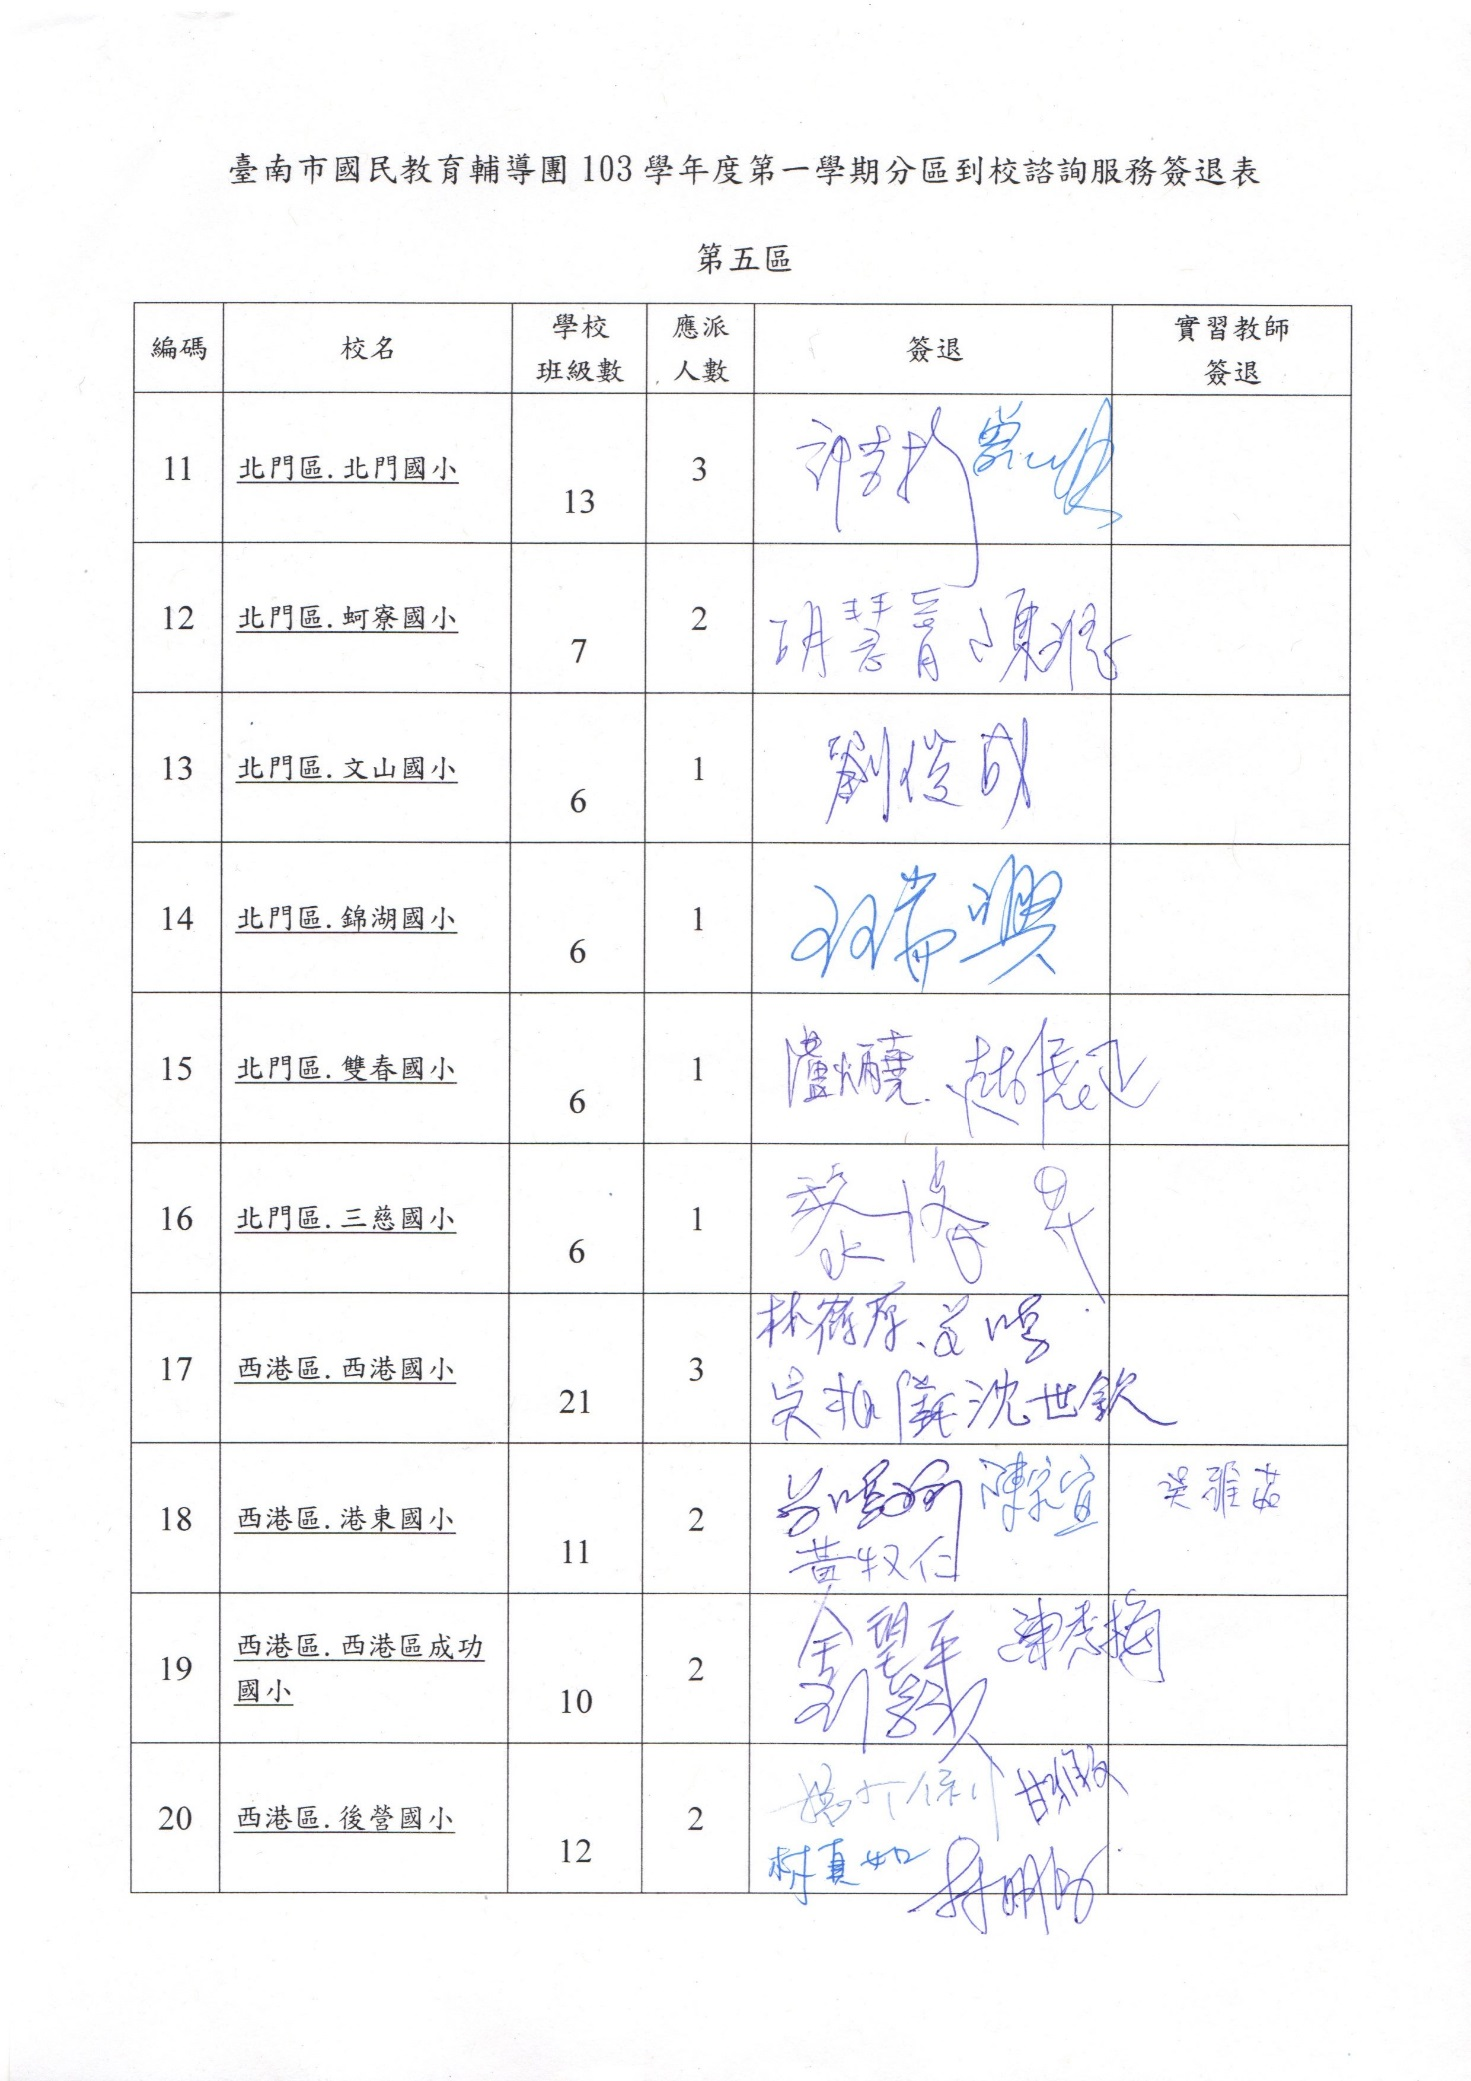 臺南市國民教育輔導團 103 學年度第一學期分區到校諮詢服務簽退表
第五區
編碼 校名 學校班級數 應派人數 簽退 實習教師簽退
11 北門區.北門國小 13 3
12 北門區.蚵寮國小 7 2 胡慧菁
13 北門區.文山國小 6 1 劉俊成
14 北門區.錦湖國小 6 1
15 北門區.雙春國小 6 1
16 北門區.三慈國小 6 1
17 西港區.西港國小 21 3
沈世欽
18 西港區.港東國小 11 2 陳宗宣 吳雅茹
黃牧仁
19 西港區.西港區成功
國小 10 2
20 西港區.後營國小 12 2
林真如